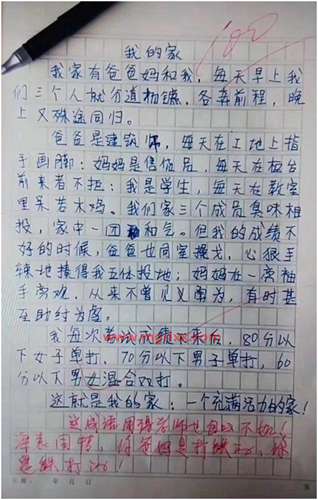 100
我的家
我家有爸爸妈和我,每天早上我
们三个人就分道扬镳,各奔前程,晚
上又殊途同归。
爸爸是建筑师,每天在工地上指
手画脚;妈妈是售货员,每天在柜台
前来者不拒;我是学生,每天在教室
里呆若木鸡。我们家三个成员臭味相
投,家中一团和气。但我的成绩不
好的时候,爸爸也同室操戈,心狠手
辣地揍得我五体投地;妈妈在一旁袖
手旁观,从来不曾见义勇为,有时甚
至助纣为虐。
我每次考试成绩下来后,80分以
下女子单打,70分以下男子单打,60
分以下男女混合双打。
这就是我的家:一个充满活力的家!
这成语用得